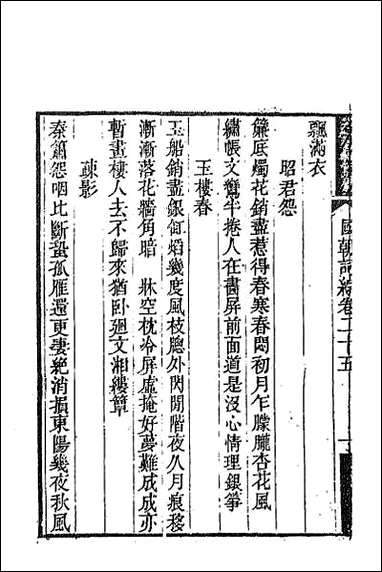 飄滿衣
昭君怨
簾底燭花銷盡惹得春寒春悶初月乍朦朧杏花風
繡帳文鴛半捲人在畫屏前面道是沒心情理銀箏
玉樓春
玉船銷盡銀釭焰幾度風枝聽外閃閒階夜久月痕移
漸漸落花牆角暗 牀空枕冷屏虛掩好夢難成成亦
暫畫樓人去不歸來猶臥廻文湘縷簟
疎影
秦簫怨咽比斷蛩孤雁還更凄絶消損東陽幾夜秋風
國朝詞綜卷二十五